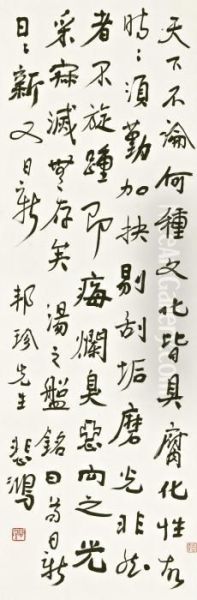 天下不論何種文化皆具腐化性故
時〻須勤加抉剔刮垢磨光非然
者不旋踵即痗爛臭惡向之光
采寂滅無存矣湯之盤銘曰苟日新
日〻新又日新
邦珍先生 悲鴻